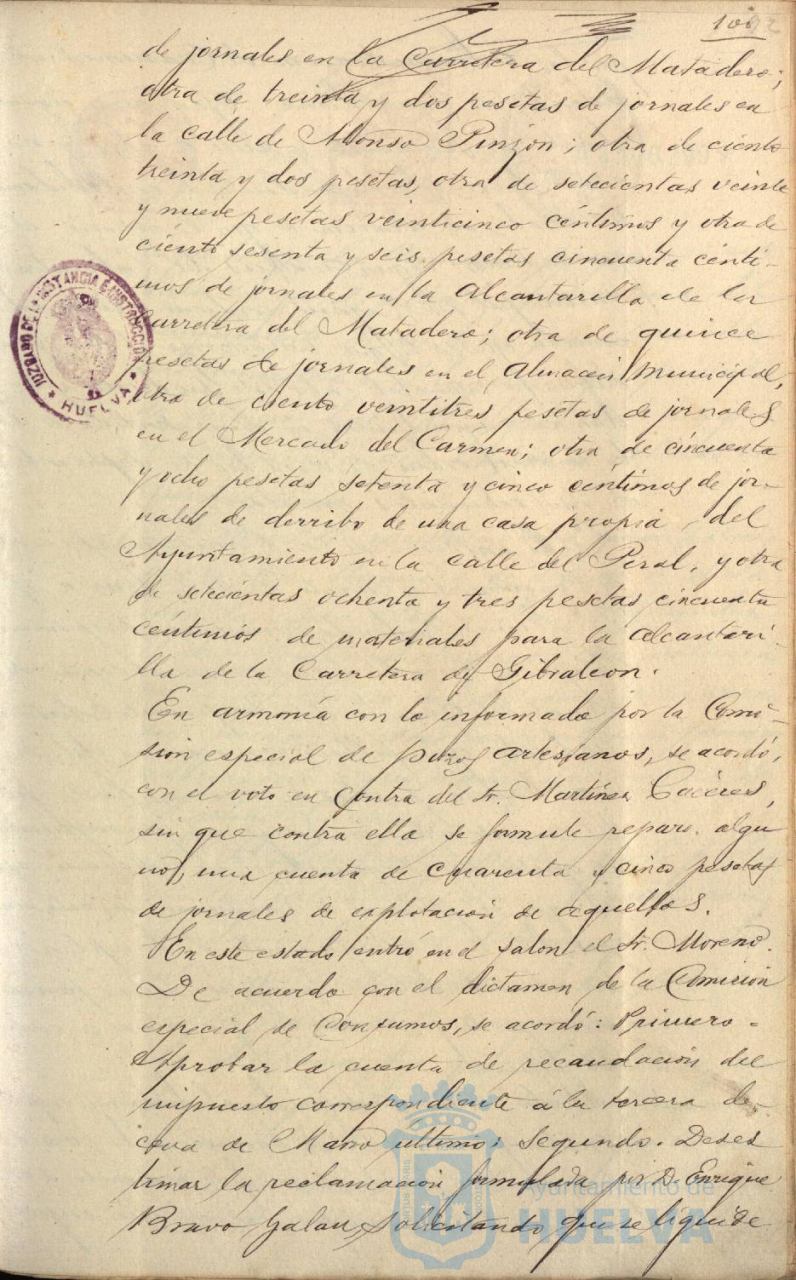 100
de jornales en la Carretera del Matadero;
otra de treinta y dos pesetas de jornales en
la calle de Alonso Pinzon; otra de ciento
treinta y dos pesetas, otra de setecientas veinte
y nueve pesetas veinticinco céntimos y otra de
ciento sesenta y seis pesetas cincuenta cénti-
mos de jornales en la Alcantarilla de la
Carretera del Matadero; otra de quince
pesetas de jornales en el Almacén Municipal,
otra de ciento veintitres pesetas de jornales
en el Mercado del Carmen; otra de cincuenta
y ocho pesetas setenta y cinco céntimos de jor-
nales de derribo de una casa propia del
Ayuntamiento en la calle del Peral, y otra
de setecientas ochenta y tres pesetas cincuenta
céntimos de materiales para la alcantari-
lla de la Carretera de Gibraleon.
En armonía con lo informado por la Comi-
sion especial de pozos artesianos, se acordó,
con el voto en contra del Sr. Martinez Cáceres,
sin que contra ella se formule reparo algu
no, una cuenta de cuarenta y cinco pesetas
de jornales de explotación de aquellos.
En este estado entró en el salon el Sr. Moreno.
De acuerdo con el dictamen de la Comision
especial de Consumos, se acordó: Primero-
Aprobar la cuenta de recaudación del
impuesto correspondiente á la tercera de-
cena de Marzo ultimo: Segundo. Deses
timar la reclamación formulada por D. Enrique
Bravo Galan, solicitando, que se liquide
JUZGADO DE 1ª INSTANCIA E INSTRUCCION
* HUELVA *
Ayuntamiento de
HUELVA